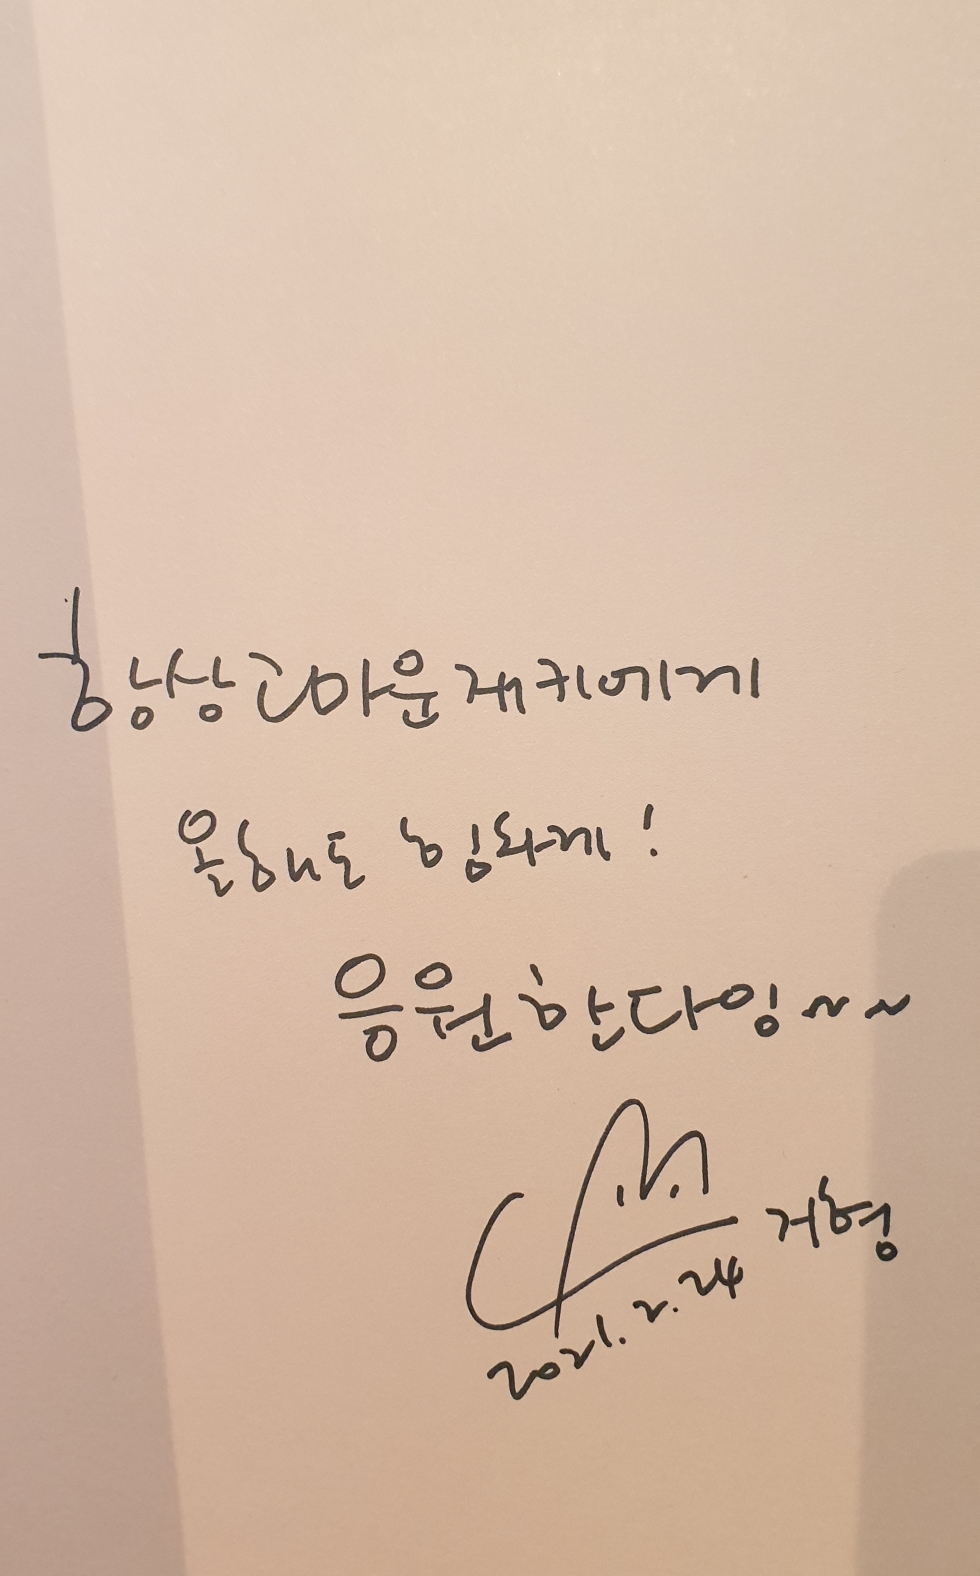 항상 고마운 재키에게
올해도 힘차게!
응원한다잉~~
거형
2021.2.24